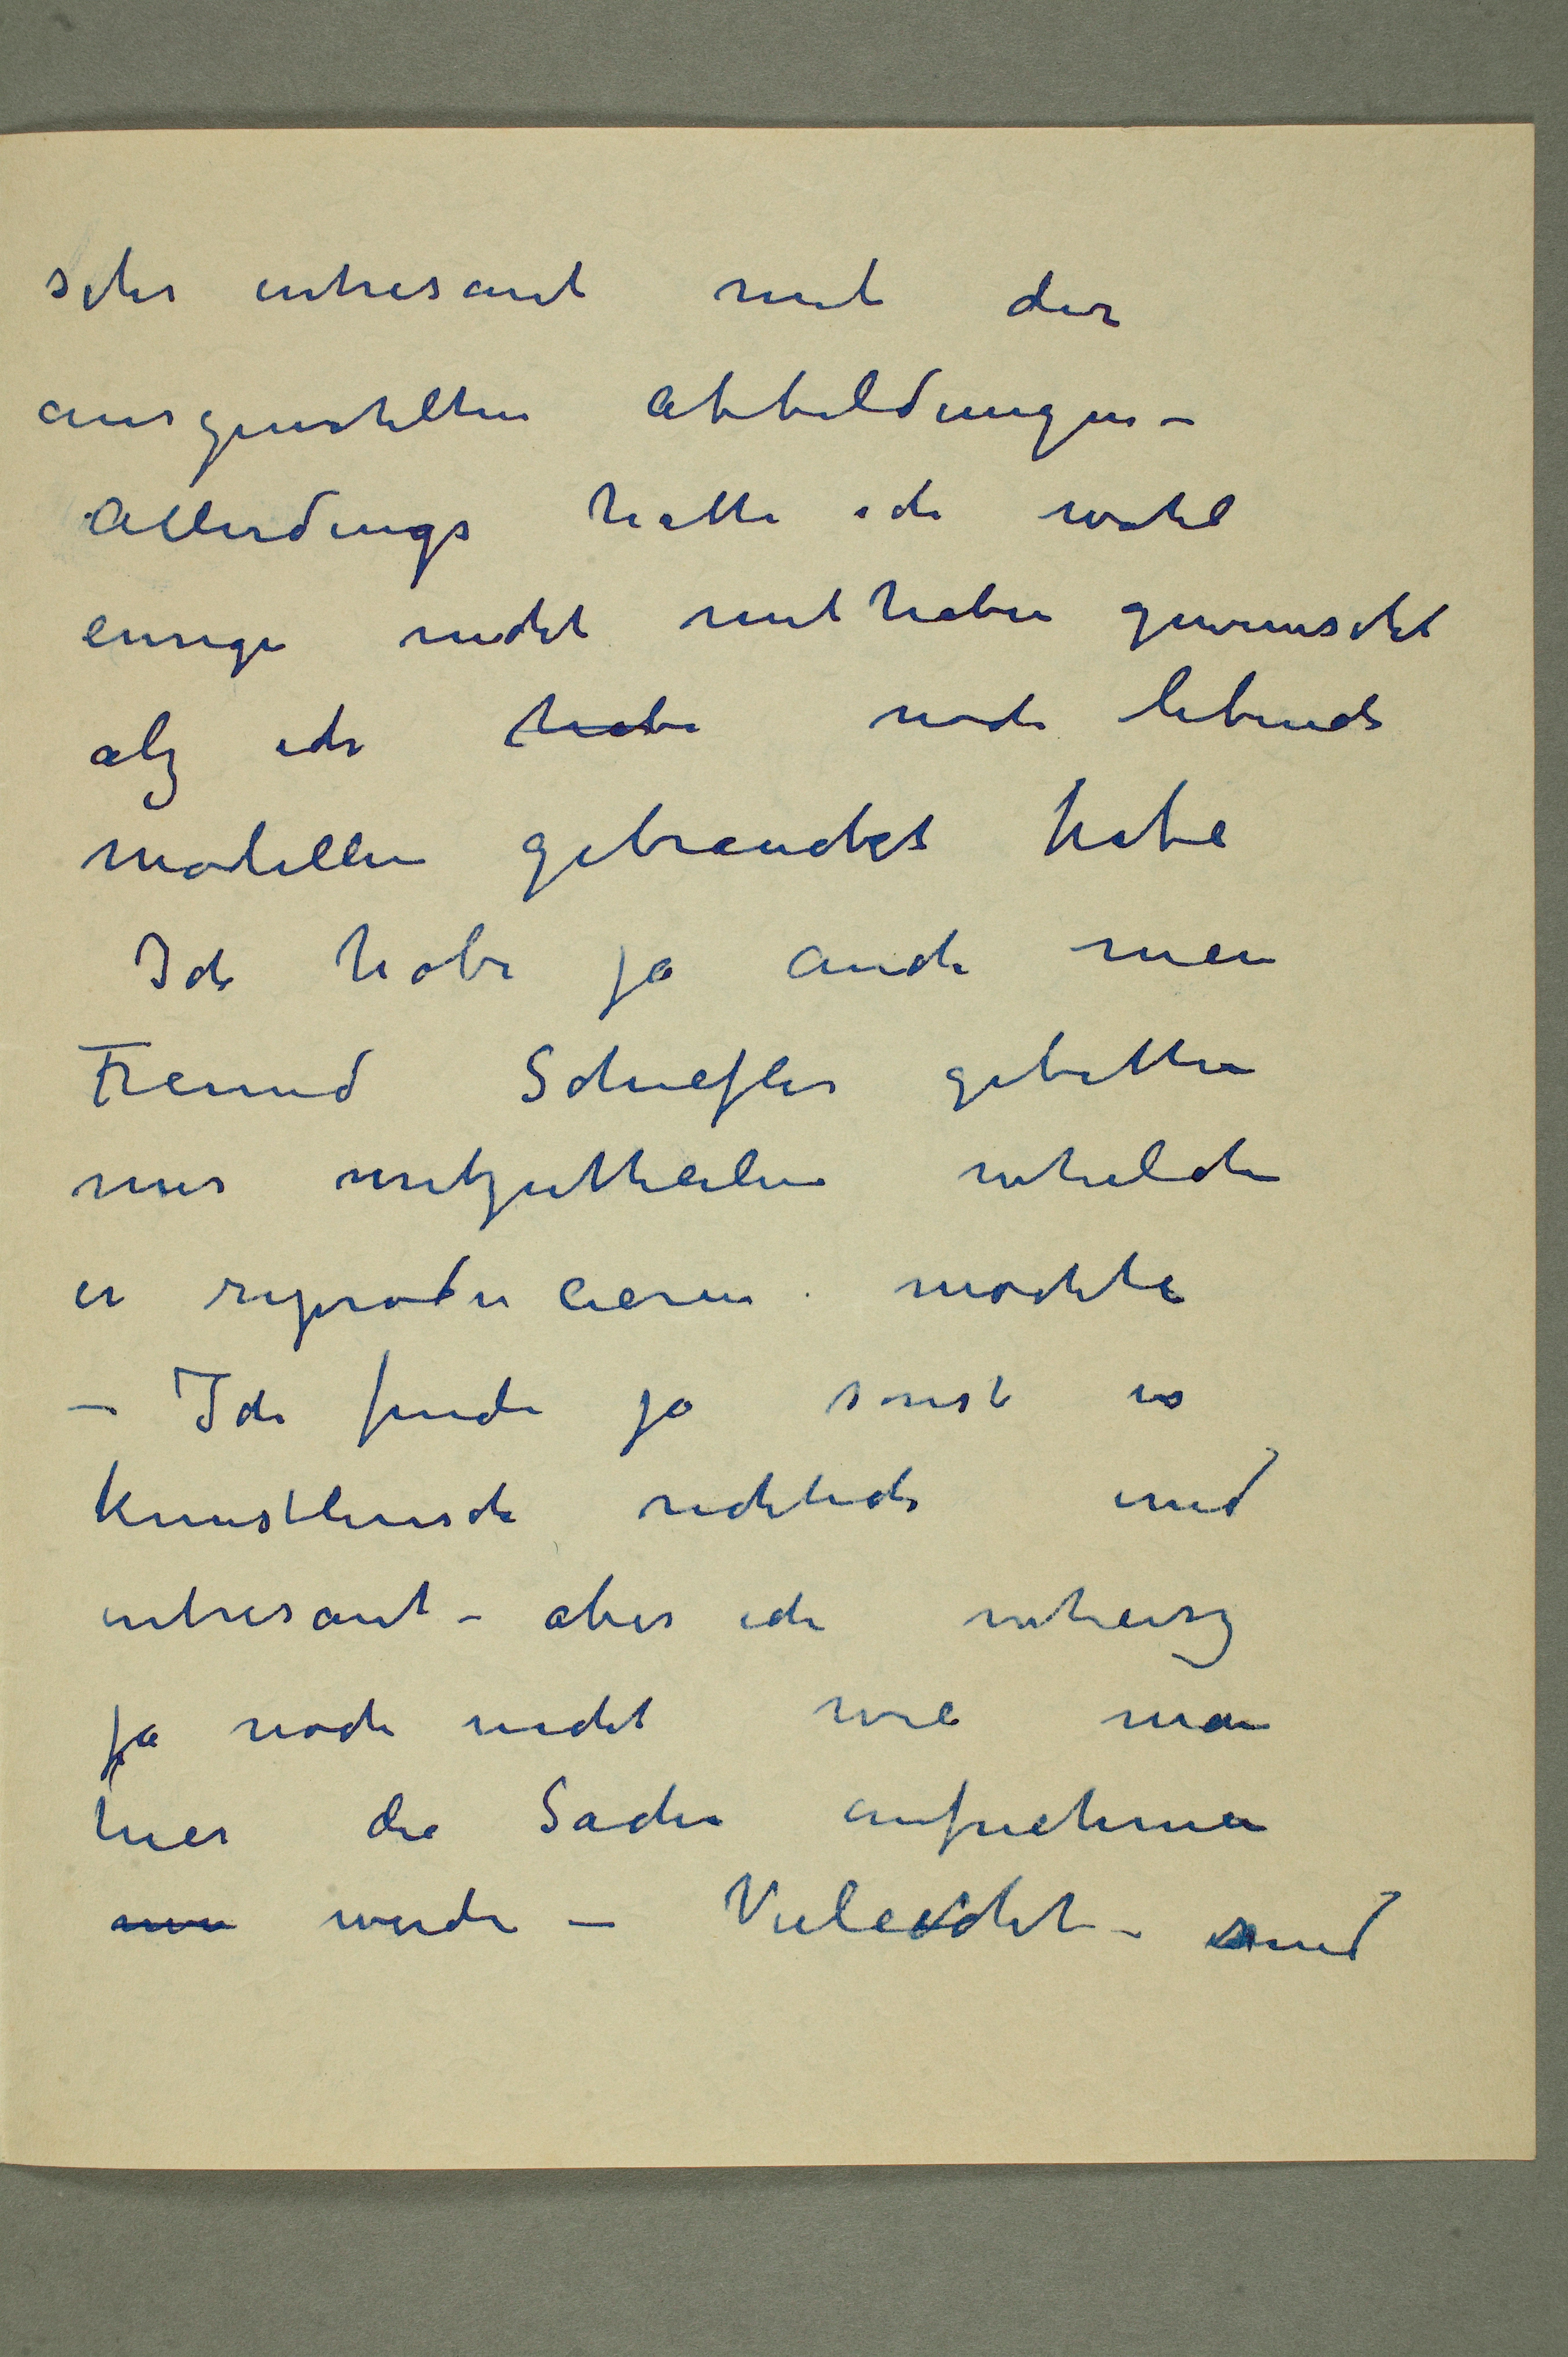 sehr intresant mit der
ausgewählten Abbildungen –
Allerdings hätte ich wohl
einige nicht mit haben gewünscht
alz ich habe noch lebende
modellen gebrauchet habe
Ich habe ja auch mein
Freund Schiefler gebetten
mir mitzutheilen whelche
er reproducieren möchte
– Ich finde ja sonst es
künstlerisch richtich und
intresant – aber ich wheisz
ja noch nicht wie man
hier die Sache aufnehmen
werde – Vieleicht – sind